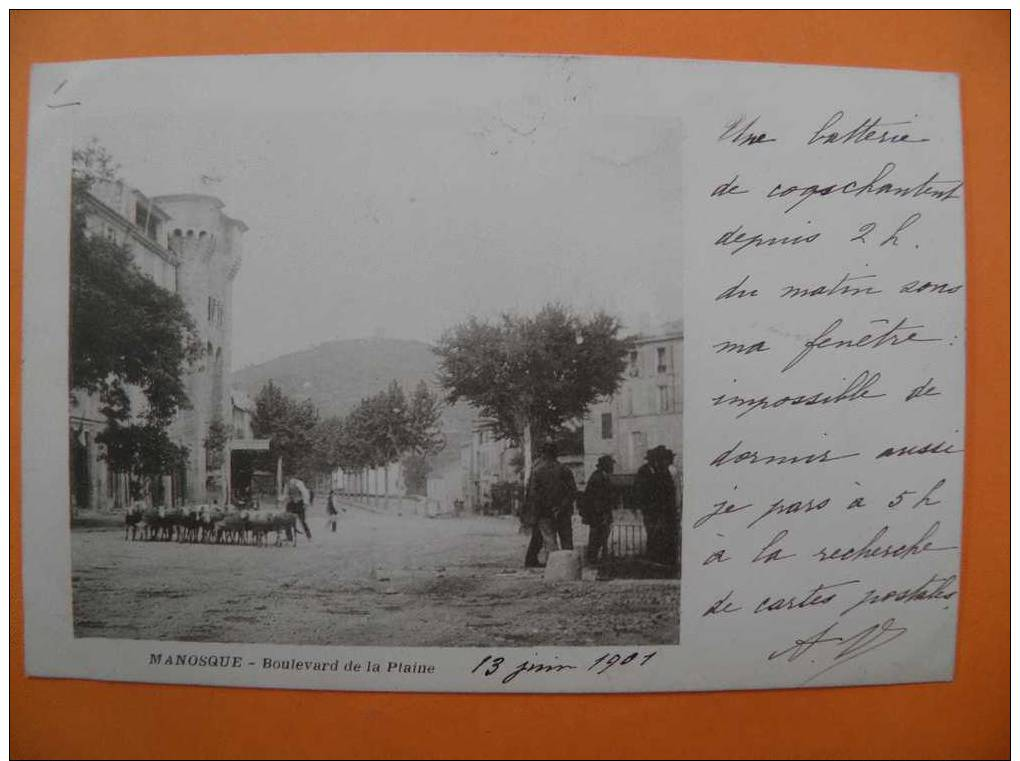 Une batterie
de coqs chantent
depuis 2 h.
du matin sous
ma fenêtre :
impossible de
dormir aussi
je pars à 5 h
à la recherche
de cartes postales.
AV
MANOSQUE - Boulevard de la Plaine
13 juin 1901